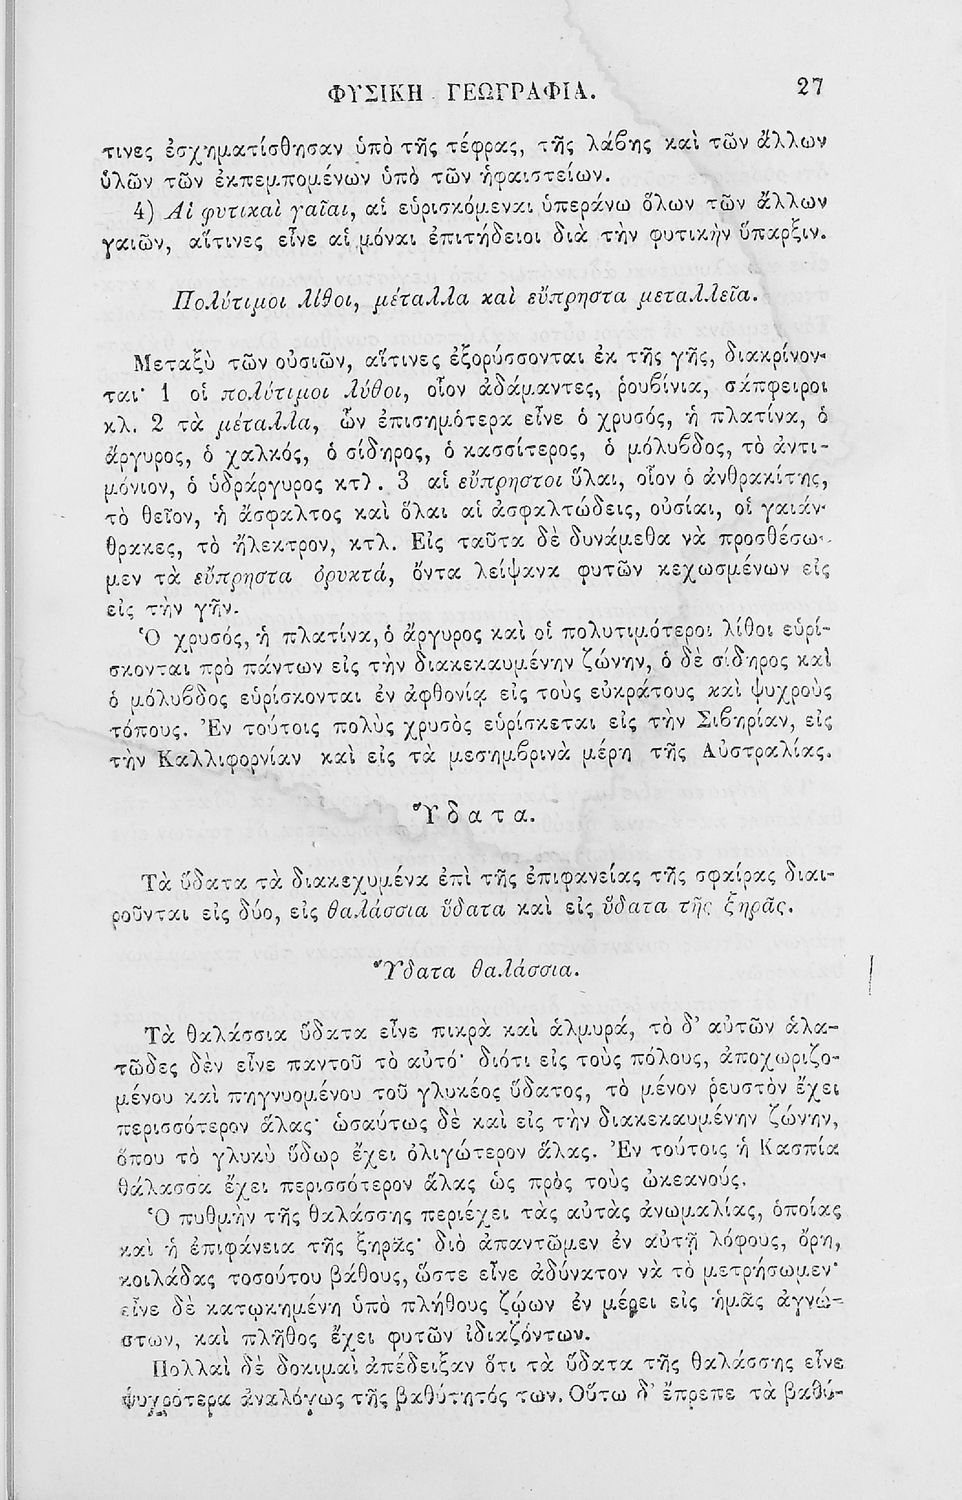 ΦΥΣΙΚΗ ΓΕΩΓΡΑΦΙΑ. 27
τινες ἐσχηματίσθησαν ὑπὸ τῆς τέφρας, τῆς λάβης καὶ τῶν ἄλλων
ὑλῶν τῶν ἐκπεμπομένων ὑπὸ τῶν ἡφαιστείων.
4) Αἱ φυτικαὶ γαῖαι, αἱ εὑρισκόμεναι ὑπεράνω ὅλων τῶν ἄλλων
γαιῶν, αἵτινες εἶνε αἱ μόναι ἐπιτήδειοι διὰ τὴν φυτικὴν ὕπαρξιν.
Πολύτιμοι λίθοι, μέταλλα καὶ εὔπρηστα μεταλλεῖα.
Μεταξὺ τῶν οὐσιῶν, αἵτινες ἐξορύσσονται ἐκ τῆς γῆς, διακρίνον-
ται· 1 οἱ πολύτιμοι λύθοι, οἷον ἀδάμαντες, ῥουβίνια, σάπφειροι
κλ. 2 τὰ μέταλλα, ὧν ἐπισημότερα εἶνε ὁ χρυσός, ἡ πλατίνα, ὁ
ἄργυρος, ὁ χαλκός, ὁ σίδηρος, ὁ κασσίτερος, ὁ μόλυβδος, τὸ ἀντι-
μόνιον, ὁ ὑδράργυρος κτλ. 3 αἱ εὔπρηστοι ὗλαι, οἷον ὁ ἀνθρακίτης,
τὸ θεῖον, ἡ ἄσφαλτος καὶ ὅλαι αἱ ἀσφαλτώδεις, οὐσίαι, οἱ γαιάν-
θρακες, τὸ ἤλεκτρον, κτλ. Εἰς ταῦτα δὲ δυνάμεθα νὰ προσθέσω-
μεν τὰ εὔπρηστα ὀρυκτά, ὄντα λείψανα φυτῶν κεχωσμένων εἰς
εἰς τὴν γῆν.
Ὁ χρυσός, ἡ πλατίνα, ὁ ἄργυρος καὶ οἱ πολυτιμότεροι λίθοι εὑρί-
σκονται πρὸ πάντων εἰς τὴν διακεκαυμένην ζώνην, ὁ δὲ σίδηρος καὶ
ὁ μόλυβδος εὑρίσκονται ἐν ἀφθονίᾳ εἰς τοὺς εὐκράτους καὶ ψυχροὺς
τόπους. Ἐν τούτοις πολὺς χρυσὸς εὑρίσκεται εἰς τὴν Σιβηρίαν, εἰς
τὴν Καλλιφορνίαν καὶ εἰς τὰ μεσημβρινὰ μέρη τῆς Αὐστραλίας.
Ὕδατα.
Τὰ ὕδατα τὰ διακεχυμένα ἐπὶ τῆς ἐπιφανείας τῆς σφαίρας διαι-
ροῦνται εἰς δύο, εἰς θαλάσσια ὕδατα καὶ εἰς ὕδατα τῆς ξηρᾶς.
Ὕδατα θαλάσσια.
Τὰ θαλάσσια ὕδατα εἶνε πικρὰ καὶ ἁλμυρά, τὸ δ' αὐτῶν ἁλα-
τῶδες δὲν εἶνε παντοῦ τὸ αὐτό· διότι εἰς τοὺς πόλους, ἀποχωριζο-
μένου καὶ πηγνυομένου τοῦ γλυκέος ὕδατος, τὸ μένον ῥευστὸν ἔχει
περισσότερον ἅλας· ὡσαύτως δὲ καὶ εἰς τὴν διακεκαυμένην ζώνην,
ὅπου τὸ γλυκὺ ὕδωρ ἔχει ὀλιγώτερον ἅλας. Ἐν τούτοις ἡ Κασπία
θάλασσα ἔχει περισσότερον ἅλας ὡς πρὸς τοὺς ὠκεανούς.
Ὁ πυθμὴν τῆς θαλάσσης περιέχει τὰς αὐτὰς ἀνωμαλίας, ὁποίας
καὶ ἡ ἐπιφάνεια τῆς ξηρᾶς· διὸ ἀπαντῶμεν ἐν αὐτῇ λόφους, ὄρη,
κοιλάδας τοσούτου βάθους, ὥστε εἶνε ἀδύνατον νὰ τὸ μετρήσωμεν·
εἶνε δὲ κατῳκημένη ὑπὸ πλήθους ζῴων ἐν μέρει εἰς ἡμᾶς ἀγνώ-
στων, καὶ πλῆθος ἔχει φυτῶν ἰδιαζόντων.
Πολλαὶ δὲ δοκιμαὶ ἀπέδειξαν ὅτι τὰ ὕδατα τῆς θαλάσσης εἶνε
ψυχρότερα ἀναλόγως τῆς βαθύτητός των. Οὕτω δ' ἔπρεπε τὰ βαθύ-